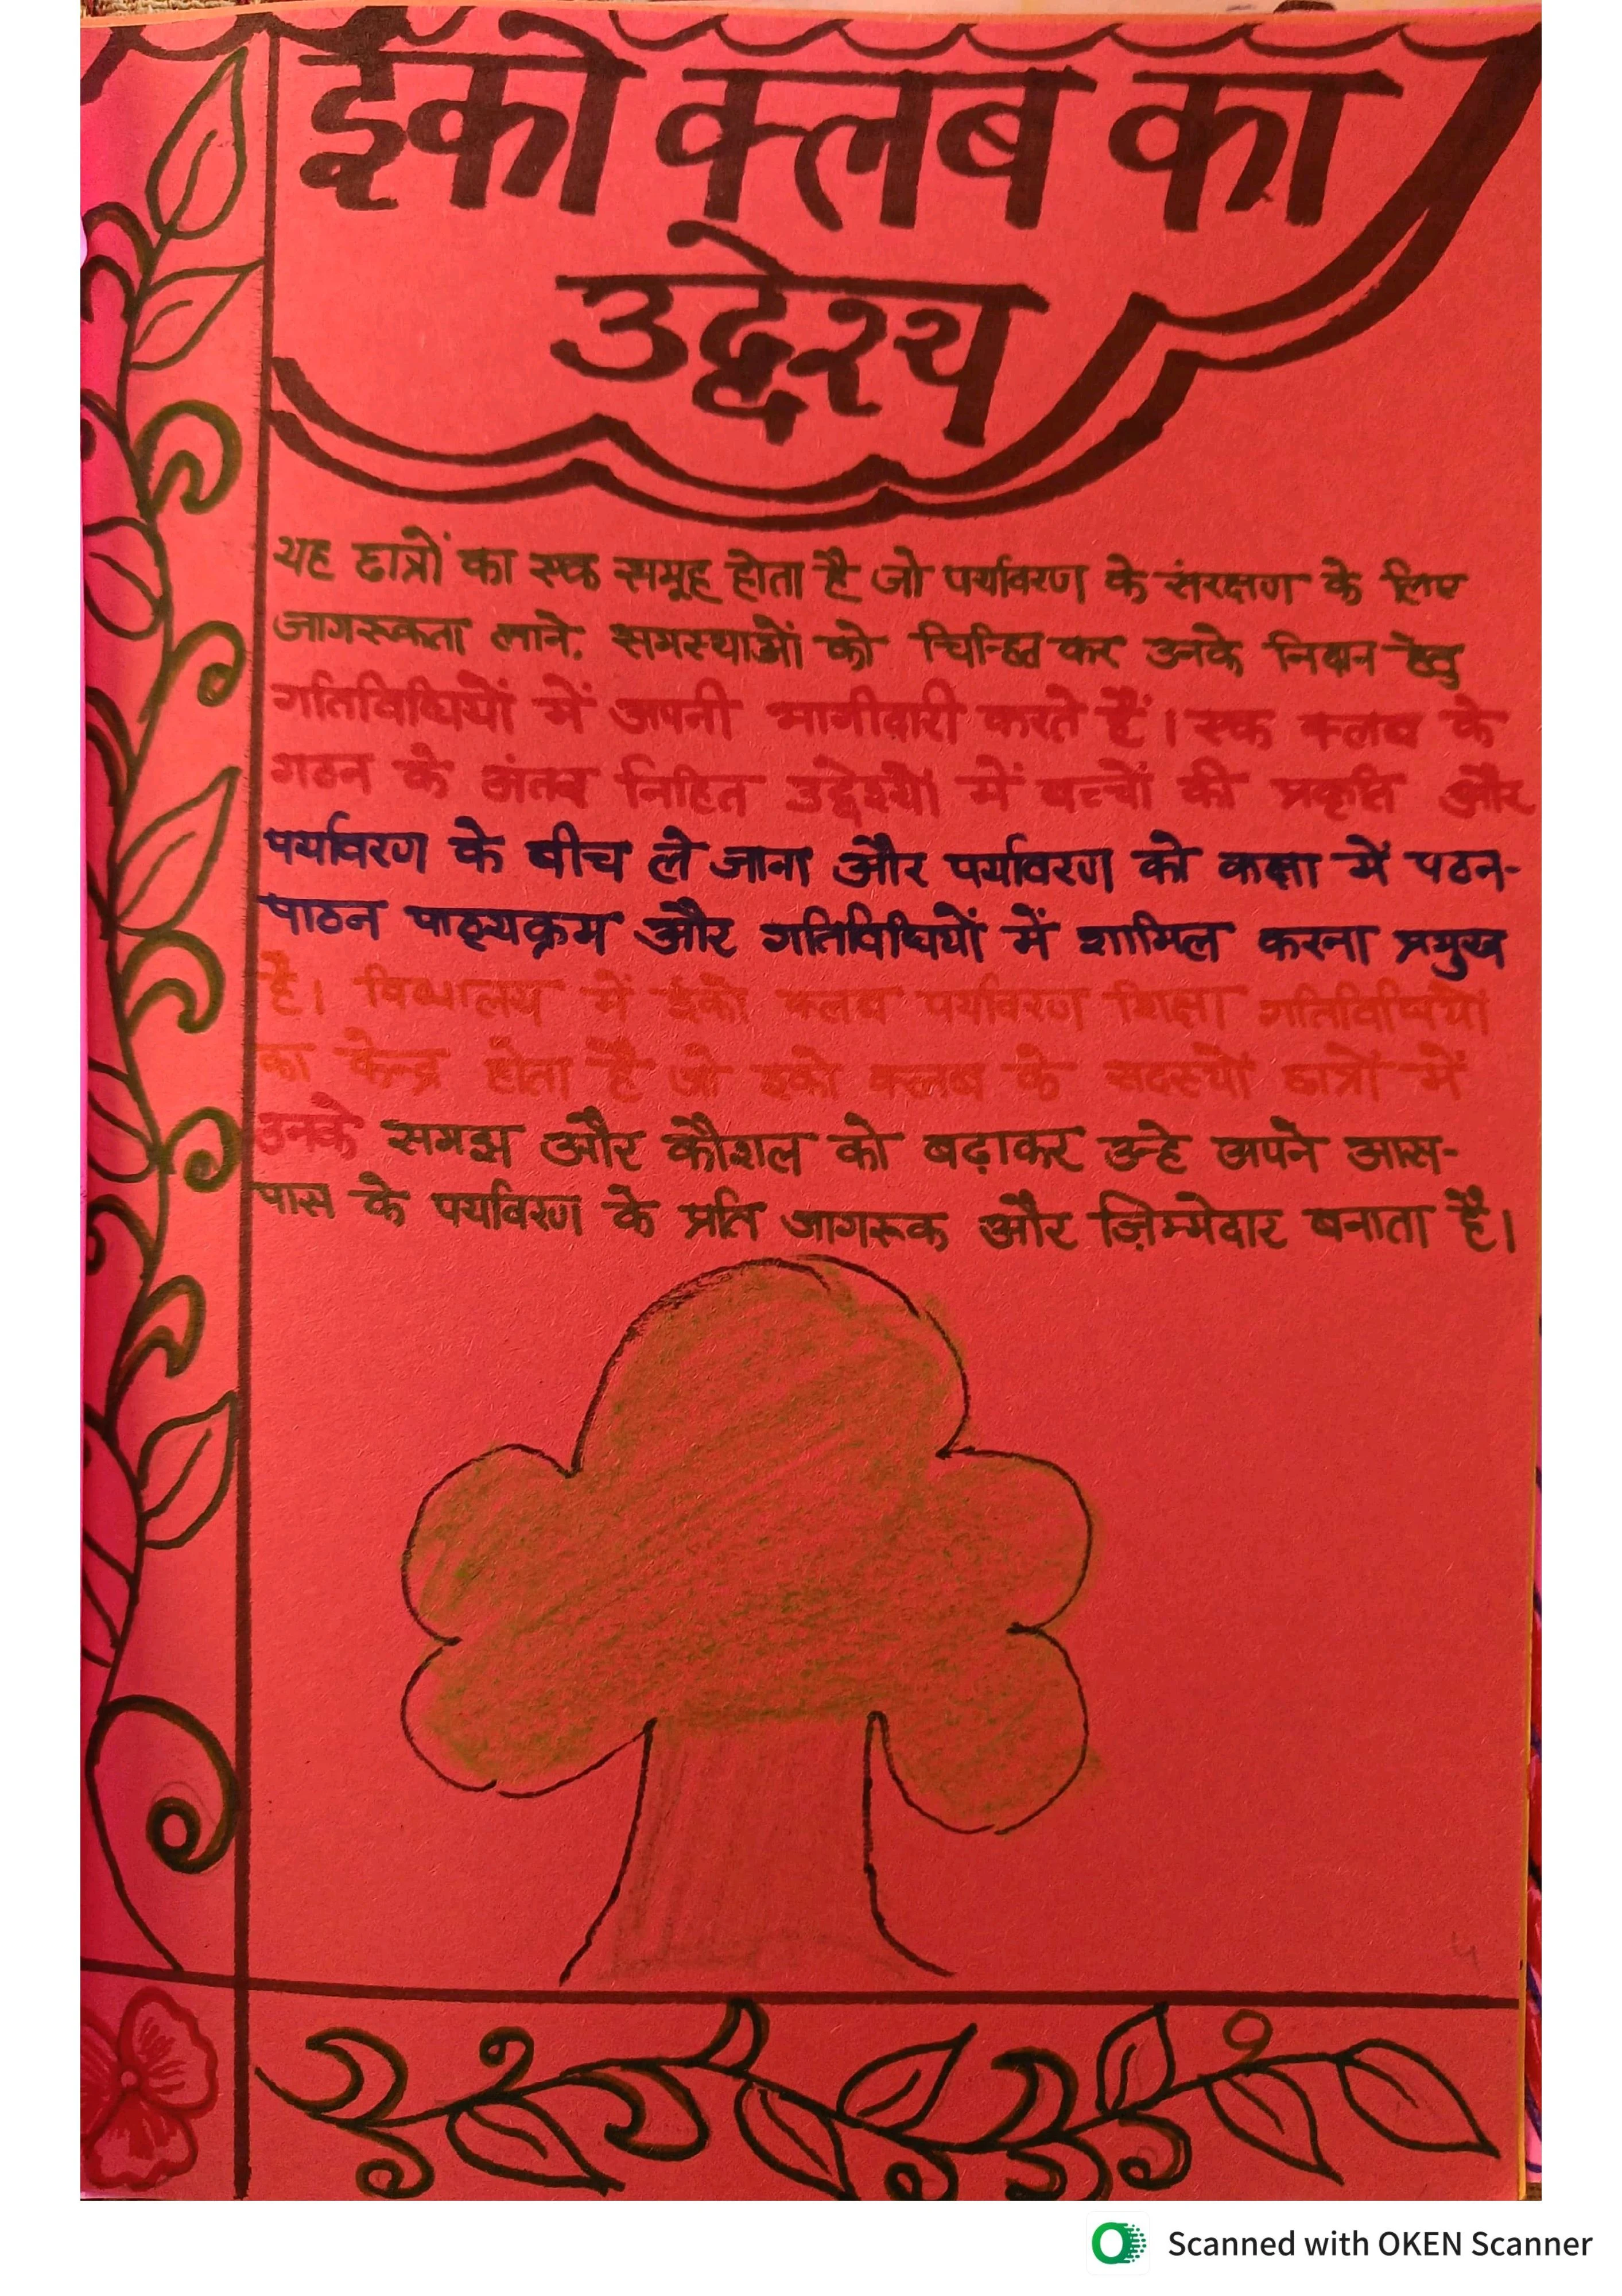 ईको क्लब का
उद्देश्य
यह छात्रों का एक समूह होता है जो पर्यावरण के संरक्षण के लिए
जागरूकता लाने, समस्याओं को चिन्हित कर उनके निदान हेतु
गतिविधियों में अपनी भागीदारी करते हैं। एक क्लब के
गठन के अंतर्व निहित उद्देश्यों में बच्चों की प्रकृति और
पर्यावरण के बीच ले जाना और पर्यावरण को कक्षा में पठन-
पाठन पाठ्यक्रम और गतिविधियों में शामिल करना प्रमुख
है। विद्यालय में ईको क्लब पर्यावरण शिक्षा गतिविधियों
का केन्द्र होता है जो इको क्लब के सदस्यों छात्रों में
उनके समझ और कौशल को बढ़ाकर उन्हे अपने आस-
पास के पर्यावरण के प्रति जागरूक और ज़िम्मेदार बनाता है।
Scanned with OKEN Scanner